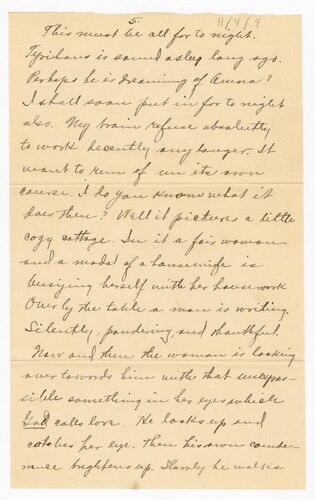 5.
11/4/9
This must be all for to night.
is sound asleep long ago.
Perhaps he is dreaming of
I shall soon put in for to night
also. My brain refuse absolutly
to work decently any longer. It
want to run of un its own
course. & do you know what it
does then? Well it pictures a little
cozy cottage. In it a fair woman
and a modal of a housewife is
busiying herself with her housework
Over by the table a man is writing.
Silently, pondering and thoutful.
Now and then the woman is looking
over towards him with that unexpres-
sible something in her eyes which
God calls love. He looks up and
catches her eye. then his own counte-
nance brightens up. Slowly he